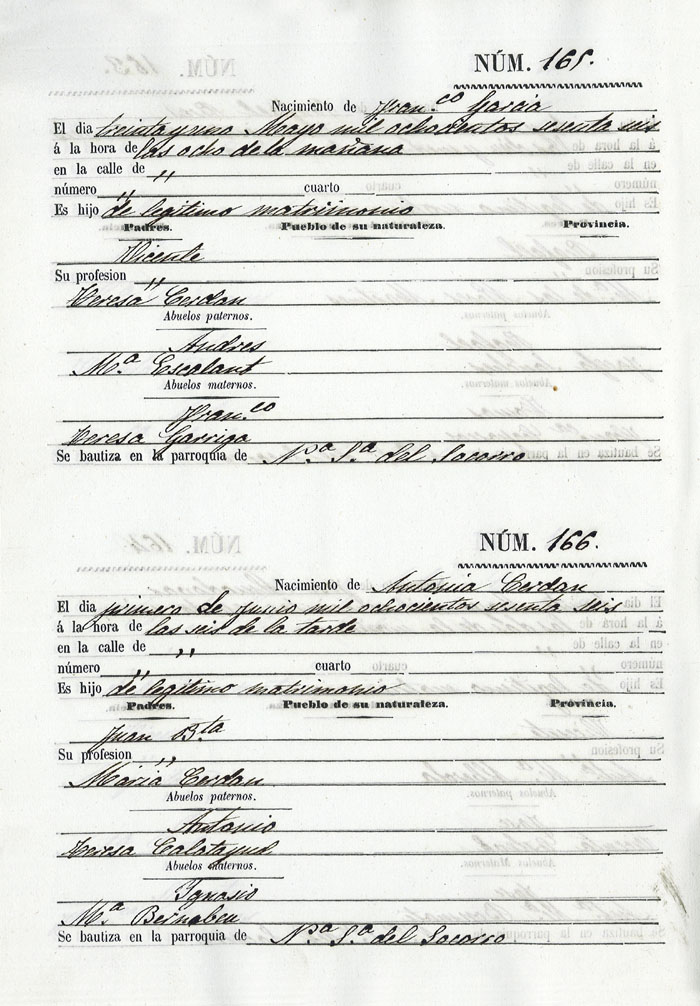 NÚM. 165.
Nacimiento de Fran.co Garcia
El dia treinta y uno Mayo mil ochocientos sesenta seis
á la hora de las ocho de la mañana
en la calle de "
número " cuarto
Es hijo de legitimo matrimonio
Padres. Pueblo de su naturaleza. Provincia.
Vicente
Su profesion "
Teresa Cerdan
Abuelos paternos.
Andres
M.a Escalant
Abuelos maternos.
Fran.co
Teresa Garriga
Se bautiza en la parroquia de N.a S.a del Socorro
NÚM. 166.
Nacimiento de Antonia Cerdan
El dia primero de junio mil ochocientos sesenta seis
á la hora de las seis de la tarde
en la calle de "
número " cuarto
Es hijo de legitimo matrimonio
Padres. Pueblo de su naturaleza. Provincia.
Juan Bta
Su profesion "
Maria Cerdan
Abuelos paternos.
Antonio
Teresa Calatayud
Abuelos maternos.
Ignasio
M.a Bernabeu
Se bautiza en la parroquia de N.a S.a del Socorro